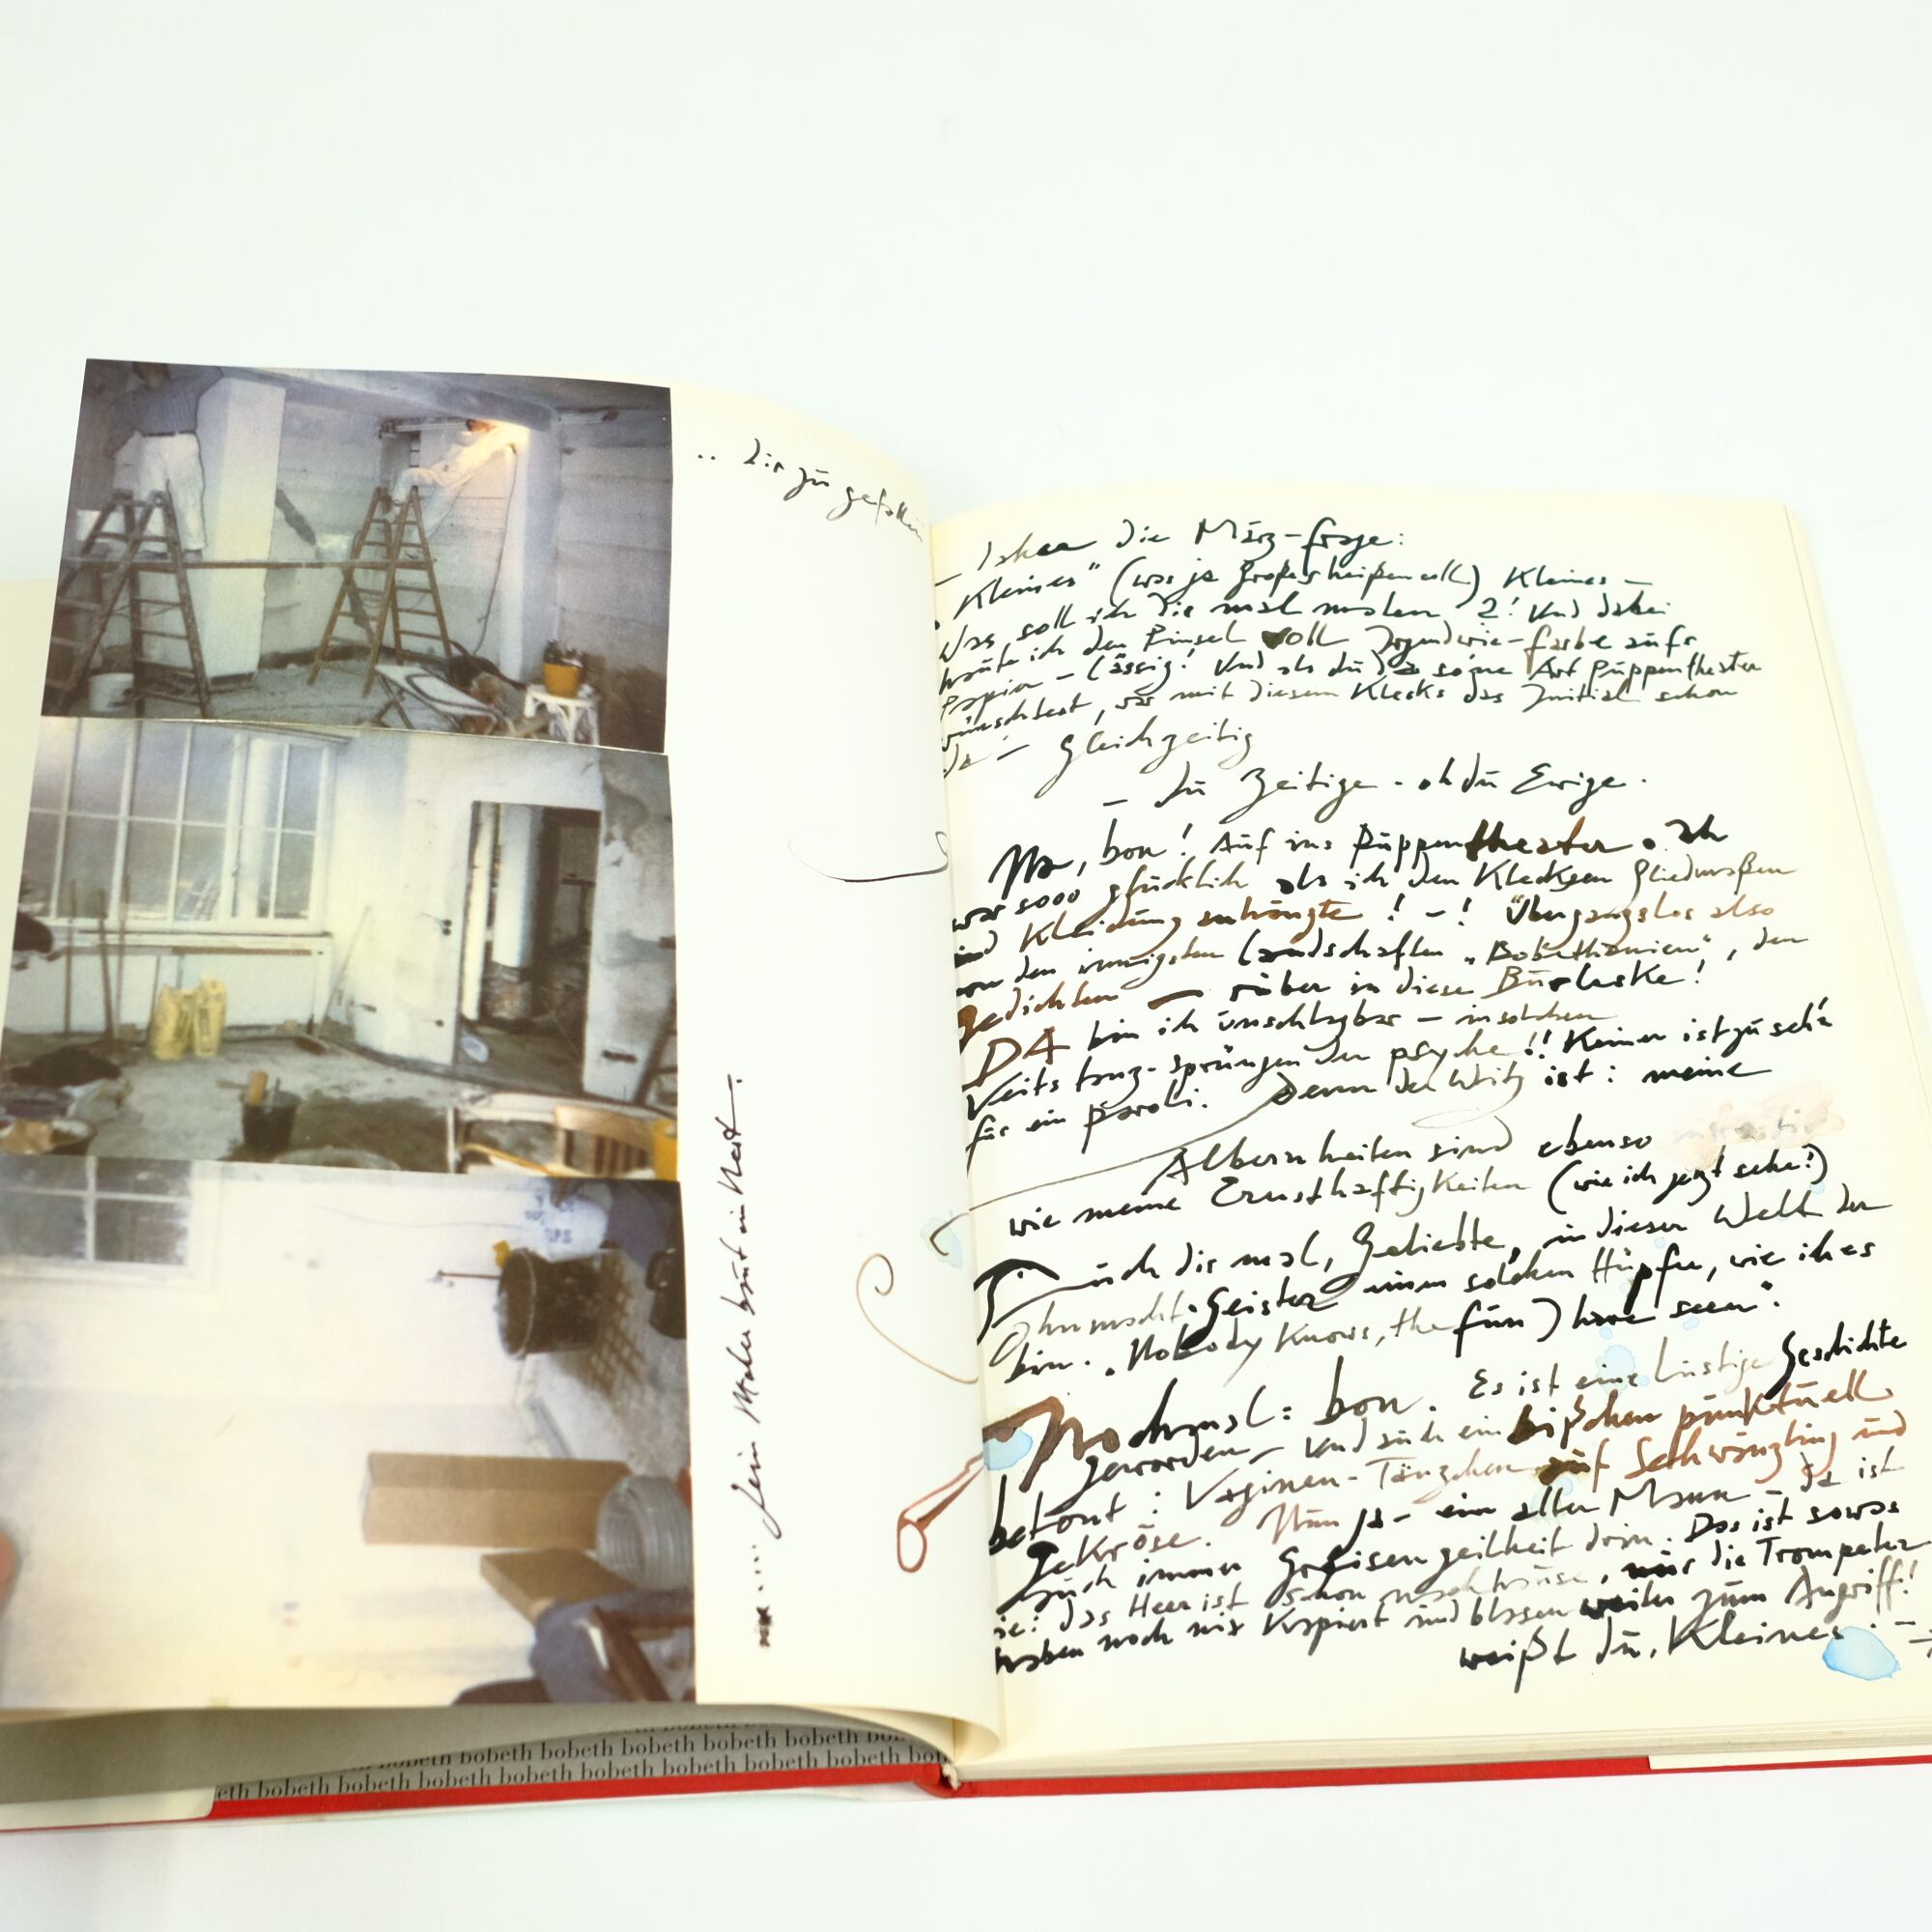 .. Dir zu gefallen
..... Dein Maler baut ein Nest.
die März-frage:
Kleines" (was ja Großes heißen soll) Kleines –
Was soll ich Dir mal malen ?! Und dabei
haute ich den Pinsel voll Irgendwie-farbe aufs
Papier – lässig! Und als du da so'ne Art Puppentheater
wünschtest, war mit diesem Klecks das Initial schon
da – Gleichzeitig
– du Zeitige – oh du Ewige.
Na, bon! Auf ins Puppentheater. Ich
war sooo glücklich als ich den Klecksen Gliedmaßen
und Kleidung anhängte ! – ! Übergangslos also
von den innigsten Landschaften „Bobethanien", den
Gedichten — rüber in diese Burleske!
DA bin ich unschlagbar – in solchen
Veitstanz-sprüngen der psyche!! Keiner ist zu seh'n
für ein paroli. Denn der Witz ist: meine
Albernheiten sind ebenso
wie meine Ernsthaftigkeiten (wie ich jetzt sehe!)
Such dir mal, Geliebte, in dieser Welt der
Ohnmacht-Geister einen solchen Hüpfer, wie ich es
bin. „Nobody knows, the fun I have seen".
Nochmal: bon. Es ist eine lustige Geschichte
geworden – Und auch ein bißchen punktuell
betont: Vaginen-Tänzchen auf Schwänzling und
Gekröse. Nun ja – ein alter Mann – da ist
auch immer Greisengeilheit drin. Das ist sowas
wie: das Heer ist schon nachhause, nur die Trompeter
haben noch nix kapiert und blasen weiter zum Angriff!
weißt du, Kleines. –
bobeth bobeth bobeth bobeth bobeth
eth bobeth bobeth bobeth bobeth bobeth bobeth bobeth bobeth